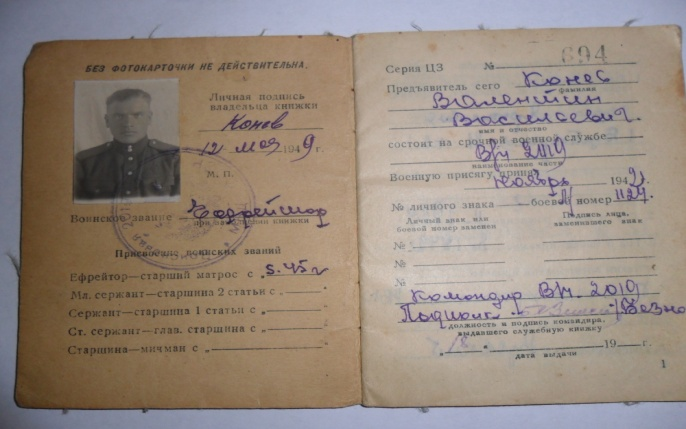 БЕЗ ФОТОКАРТОЧКИ НЕ ДЕЙСТВИТЕЛЬНА.
Личная подпись
владельца книжки
Конев
12 мая 1949 г.
М. П.
Воинское звание Ефрейтор
Присвоено воинских званий
Ефрейтор—старший матрос с 5.45 г
Мл. сержант—старшина 2 статьи с „
Сержант—старшина 1 статьи с „
Ст. сержант—глав. старшина с „
Старшина—мичман с „
Серия ЦЗ № 694
Предъявитель сего Конев
фамилия
Валентин
Васильевич.
имя и отчество
состоит на срочной военной службе
В/ч 2019
наименование части
Военную присягу принял
Ноябрь 194
№ личного знака боевой номер
Личный знак или
боевой номер заменен
Подпись лица,
заменившего знак
№
№
№
Командир В/ч. 2019
должность и подпись командира,
выдавшего служебную книжку
„18 “ 19 г.
дата выдачи
1